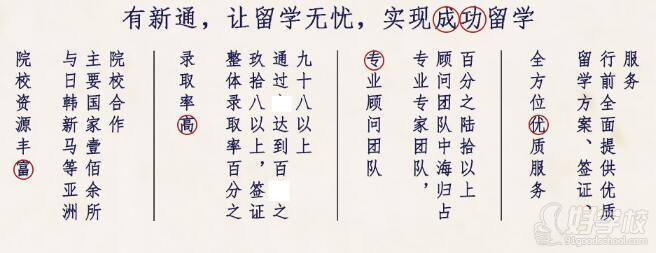 有新通，让留学无忧，实现成功留学
院校资源丰富
与日韩新马等亚洲
主要国家壹佰余所
院校合作
录取率高
整体录取率百分之
玖拾八以上，签证
通过 达到百 之
九十八以上
专业顾问团队
专业专家团队，
顾问团队中海归占
百分之陆拾以上
全方位优质服务
留学方案、签证、
行前全面提供优质
服务
好学校
91goodschool.com